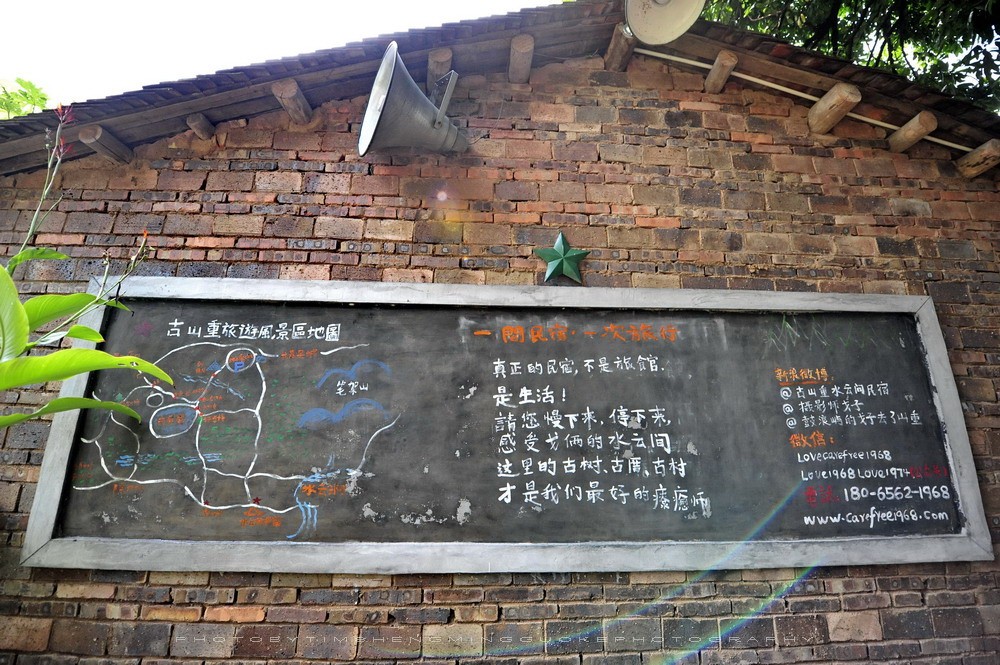 古山重旅遊風景區地圖
笔架山
一間民宿·一次旅行
真正的民宿,不是旅館.
是生活!
請您慢下来,停下来,
感受戈俩的水云间
这里的古树.古厝.古村
才是我们最好的療癒师
新浪微博
@古山重水云间民宿
@摄影师戈子
@鼓浪屿的戈子去了山重
微信:
Lovecarefree1968
Love1968Love1974
電話: 180-6562-1968
www.carefree1968.com
PHOTOBYTIMSHENGMINGGUOKEPHOTOGRAPHY